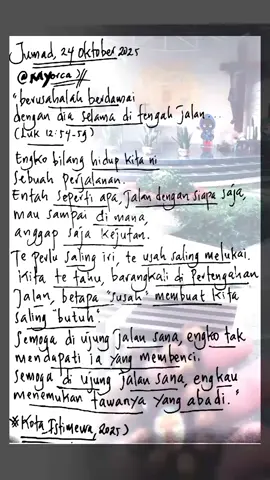 Jumad, 24 Oktober 2025
@Mayorca
"berusahalah berdamai
dengan dia selama di tengah jalan
(Luk 12:54-59)
Engko bilang hidup kita ni
sebuah Perjalanan.
Entah seperti apa, jalan dengan siapa saja,
mau sampai di mana,
anggap saja kejutan.
Te perlu saling iri, te usah saling melukai.
Kita te tahu, barangkali di Pertengahan
Jalan, betapa "susah" membuat kita
saling "butuh".
Semoga di ujung jalan sana, engko tak
mendapati ia yang membenci.
Semoga di ujung jalan sana, engkau
menemukan "tawanya yang abadi."
*Kota Istimewa, 2025)